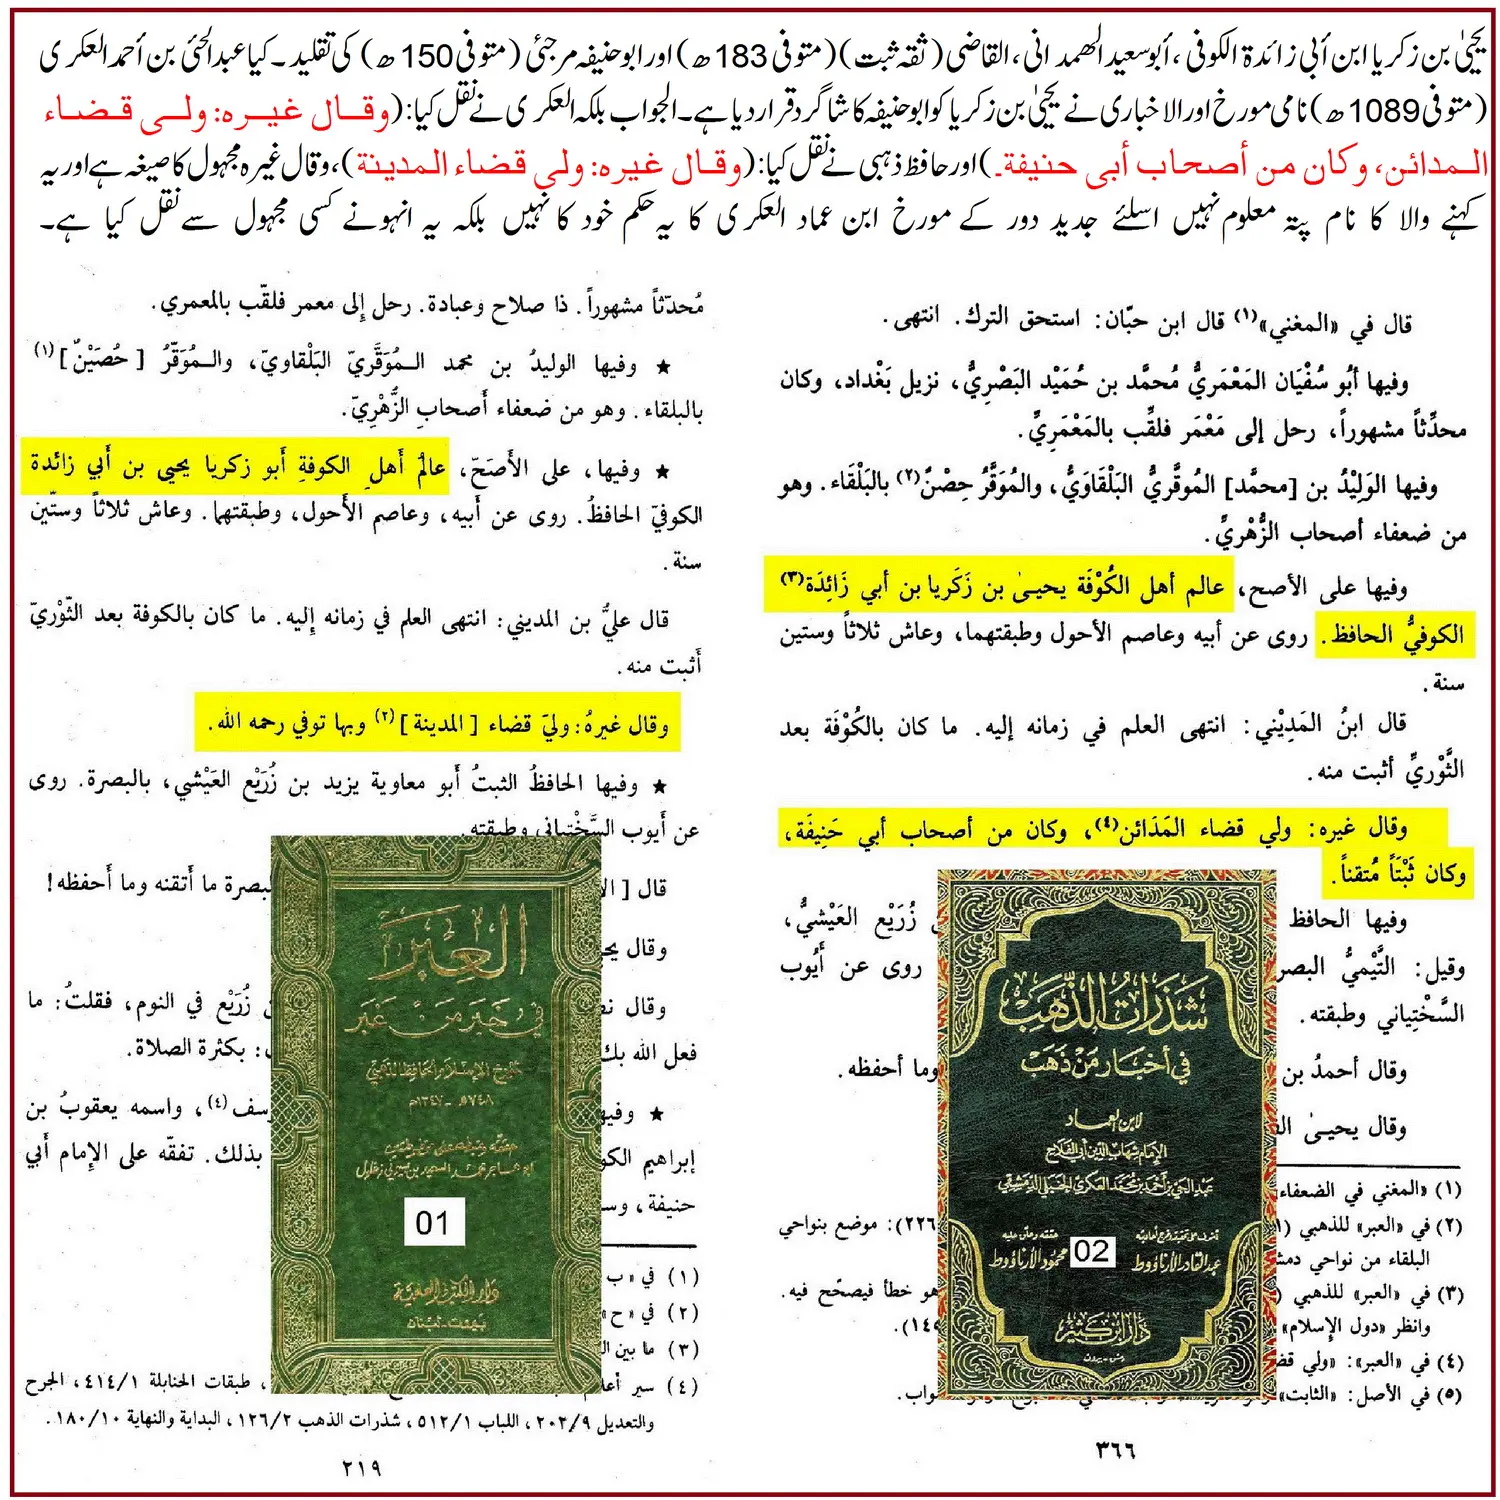 یحییٰ بن زکریا ابن أبی زائدۃ الکوفی ، أبو سعید الهمدانی ، القاضی ( ثقہ ثبت ) ( متوفی 183 ھ ) اور ابو حنیفہ مرجئی ( متوفی 150 ھ ) کی تقلید ۔ کیا عبدالحئ بن أحمد العکری
( متوفی 1089 ھ ) نامی مورخ اور الاخباری نے یحییٰ بن زکریا کو ابو حنیفہ کا شاگرد قرار دیا ہے ۔ الجواب بلکہ العکری نے نقل کیا : ( وقال غيره: ولى قضاء
المدائن، وكان من أصحاب أبى حنيفة۔ ) اور حافظ ذہبی نے نقل کیا : ( وقال غيره: ولى قضاء المدينة ) ، وقال غیرہ مجہول کا صیغہ ہے اور یہ
کہنے والا کا نام پتہ معلوم نہیں اسلئے جدید دور کے مورخ ابن عماد العکری کا یہ حکم خود کا نہیں بلکہ یہ انہونے کسی مجہول سے نقل کیا ہے ۔
قال في «المغني»(١) قال ابن حبّان: استحق الترك. انتهى.
وفيها أبُو سُفْيَان المَعْمَريُّ مُحمَّد بن حُمَيْد البَصْرِيُّ، نزيل بَغْداد، وكان
محدِّثاً مشهوراً، رحل إلى مَعْمَر فلقِّب بالمَعْمَرِيِّ.
وفيها الوَلِيْدُ بن [محمَّد] المُوقَّريُّ البَلْقَاوَيُّ، والمُوَقَّرُ حِصْنٌ(٢) بالبَلْقَاء. وهو
من ضعفاء أصحاب الزُّهْريِّ.
وفيها على الأصح، عالم أهل الكُوْفَة يحيىٰ بن زَكَريا بن أبي زَائِدَة(٣)
الكوفيُّ الحافظ. روى عن أبيه وعاصم الأحول وطبقتهما، وعاش ثلاثاً وستين
سنة.
قال ابنُ المَدِيْني: انتهى العلم في زمانه إليه. ما كان بالكُوْفَة بعد
الثَّوْريِّ أثبت منه.
وقال غيره: ولي قضاء المَدَائن(٤)، وكان من أصحاب أبي حَنِيفَة،
وكان ثَبْتَاً مُتقناً.
وفيها الحافظ
زُرَيْع العَيْشيُّ،
وقيل: التَّيْميُّ البصر
روى عن أيُّوب
السَّخْتِياني وطبقته.
وقال أحمدُ بن
وما أحفظه.
وقال يحيىٰ
(١) «المغني في الضعفاء
(٢) في «العبر» للذهبي
٢٢٦): موضع بنواحي
البلقاء من نواحي دمش
(٣) في «العبر» للذهبي
هو خطأ فيصحّح فيه.
وانظر «دول الإسلام»
(٤) في «العبر»: «ولي قض
(٥) في الأصل: «الثابت»
٣٦٦
شذرات الذهب
في أخبار من ذهب
لابن العماد
الإمام شهاب الدين أبي الفلاح
عبد الحي بن أحمد بن محمد العكري الحنبلي الدمشقي
عبد القادر الأرناؤوط
محمود الأرناؤوط
02
دار ابن كثير
مُحدّثاً مشهوراً. ذا صلاح وعبادة. رحل إلى معمر فلقّب بالمعمري.
★ وفيها الوليدُ بن محمد الـمُوَقَّريّ البَلْقاويّ، والـمُوَقّرُ [ حُصَيْنٌ ](١)
بالبلقاء. وهو من ضعفاء أصحابِ الزُّهْريّ.
★ وفيها، على الأصَحّ، عالمُ أهلِ الكوفةِ أبو زكريا يحيى بن أبي زائدة
الكوفيّ الحافظُ. روى عن أبيه، وعاصم الأحول، وطبقتهما. وعاش ثلاثاً وستّين
سنة.
قال عليُّ بن المديني: انتهى العلم في زمانه إليه. ما كان بالكوفة بعد الثّوْريّ
أثبت منه.
وقال غيرهُ: وليّ قضاء [ المدينة ](٢) وبها توفي رحمه الله.
★ وفيها الحافظُ الثبتُ أبو معاوية يزيد بن زُرَيْع العَيْشي، بالبصرة. روى
عن أيوب السَّخْتياني وطبقته.
قال [
لبصرة ما أتقنه وما أحفظه!
وقال يحي
وقال نص
زُرَيْع في النوم، فقلتُ: ما
فعل الله بك
: بكثرة الصلاة.
★ وفيها
سف(٤)، واسمه يعقوبُ بن
إبراهيم الكو
بذلك. تفقّه على الإمام أبي
حنيفة، وس
(١) في «ب
(٢) في «ح»
(٣) ما بين ال
(٤) سير أعلا
، طبقات الحنابلة ٤١٤/١، الجرح
والتعديل ٢٠٢/٩، اللباب ٥١٢/١، شذرات الذهب ١٢٦/٢، البداية والنهاية ١٨٠/١٠.
٢١٩
العبر
في خبر من غبر
لمؤرخ الإسلام الحافظ الذهبي
01
دار الكتب العلمية
بيروت - لبنان